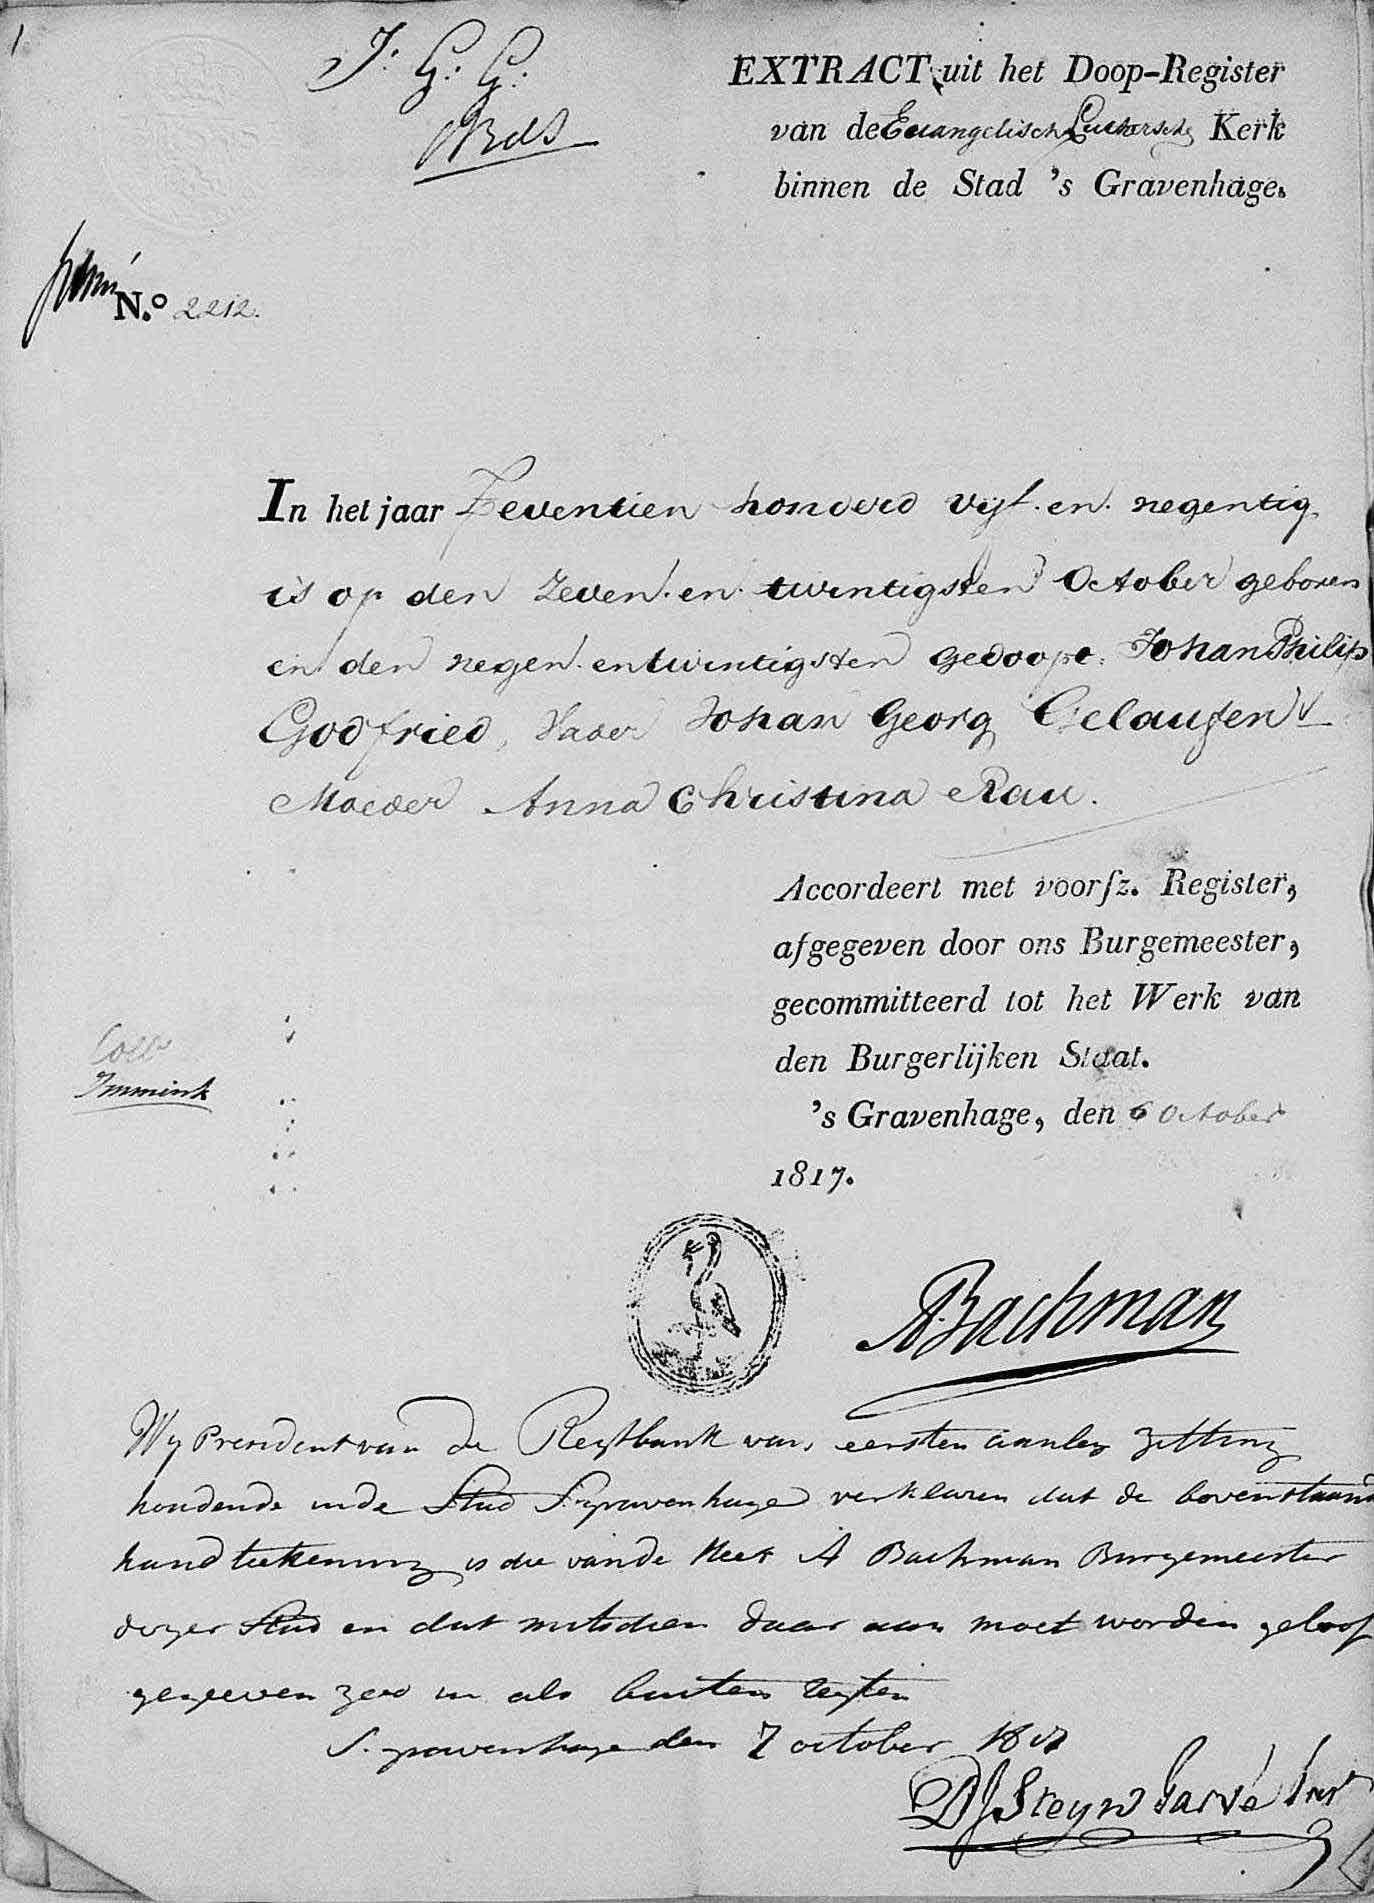 1
J: G: G:
EXTRACT uit het Doop-Register
van de Euangelisch Luthersche Kerk
binnen de Stad 's Gravenhage.
N.o 2212.
In het jaar Zeventien honderd vijf. en. negentig
is op den zeven. en. twintigsten October geboren
en den negen. en twintigsten gedoopt: Johan Philip
Godfried, Vader Johan Georg Gelaufen
Moeder Anna Christina Rau.
Accordeert met voorſz. Register,
afgegeven door ons Burgemeester,
gecommitteerd tot het Werk van
den Burgerlijken Staat.
's Gravenhage, den 6 October
1817.
Coll.
Immink
A Bachman
Wy President van de Regtbank van eersten aanleg zitting
houdende in de Stad S. gravenhage verklaren dat de bovenstaande
handteekening is die van de Heer A Bachman Burgemeester
dezer Stad en dat mitsdien daar aan moet worden geloof
gegeeven zoo in als buiten regten
S. gravenhage den 7 october 1817
DJ Steyn Parvé